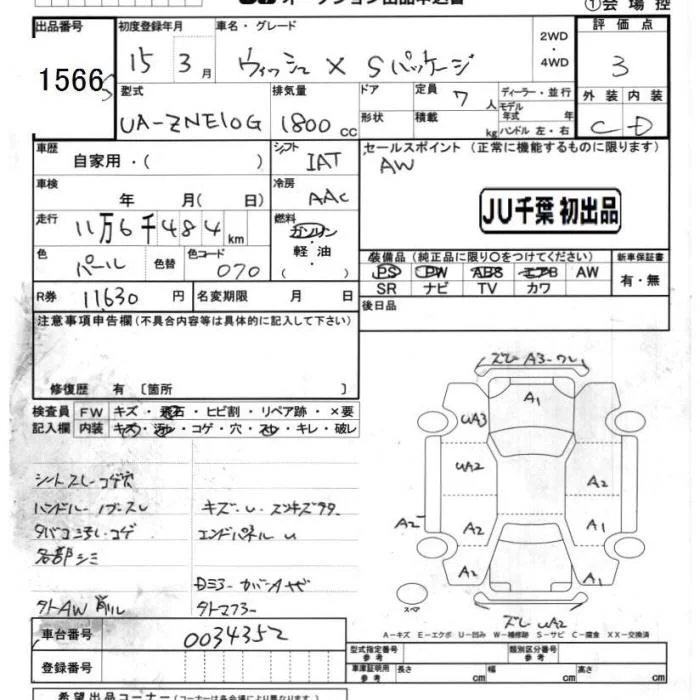 オークション出品申込書 ①会場控
出品番号 初度登録年月 車名・グレード 評価点
1566 15年 3月 ウィッシュ X Sパッケージ 2WD・4WD 3
型式 排気量 ドア 定員 7人 ディーラー・並行 外装 内装
UA-ZNE10G 1800cc 形状 積載 kg モデル年式 年 ハンドル 左・右 C D
車歴 自家用・( ) シフト IAT セールスポイント (正常に機能するものに限ります)
AW
車検 年 月( 日) 冷房 AAC
JU千葉 初出品
走行 11万6千484km 燃料 ガソリン・軽油・( )
色 パール 色替 色コード 070
装備品 (純正品に限り○をつけてください) 新車保証書
PS PW ABS エアB AW 有・無
SR ナビ TV カワ
R券 11630円 名変期限 月 日 後日品
注意事項申告欄(不具合内容等は具体的に記入して下さい)
修復歴 有 [箇所 ]
検査員 FW キズ・飛石・ヒビ割・リペア跡・×要
記入欄 内装 キズ・汚レ・コゲ・穴・スレ・キレ・破レ
シートスレ・コゲ穴
ハンドル・ノブスレ
タバコ コゲ
各部シミ
エンドパネルU
タトAW 削ル
タトマフラー
ズレ A3-ワレ
A1
UA3
UA2
A2
A2
A2
A1
A2
A1
スペア
ズレ UA2
A-キズ E-エクボ U-凹み W-補修跡 S-サビ C-腐食 XX-交換済
車台番号 0034352
登録番号
型式指定番号 参考 類別区分番号 参考
車庫証明用 参考 長さ cm 幅 cm 高さ cm
希望出品コーナー (コーナーは各会場により異なります)